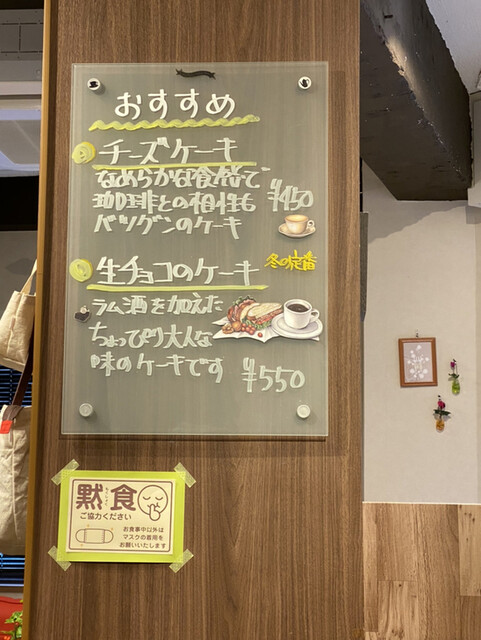 おすすめ
チーズケーキ
なめらかな食感で
珈琲との相性も
バツグンのケーキ
¥450
生チョコのケーキ
冬の定番
ラム酒を加えた
ちょっぴり大人な
味のケーキです
¥550
黙食
ご協力ください
お食事中以外は
マスクの着用を
お願いいたします